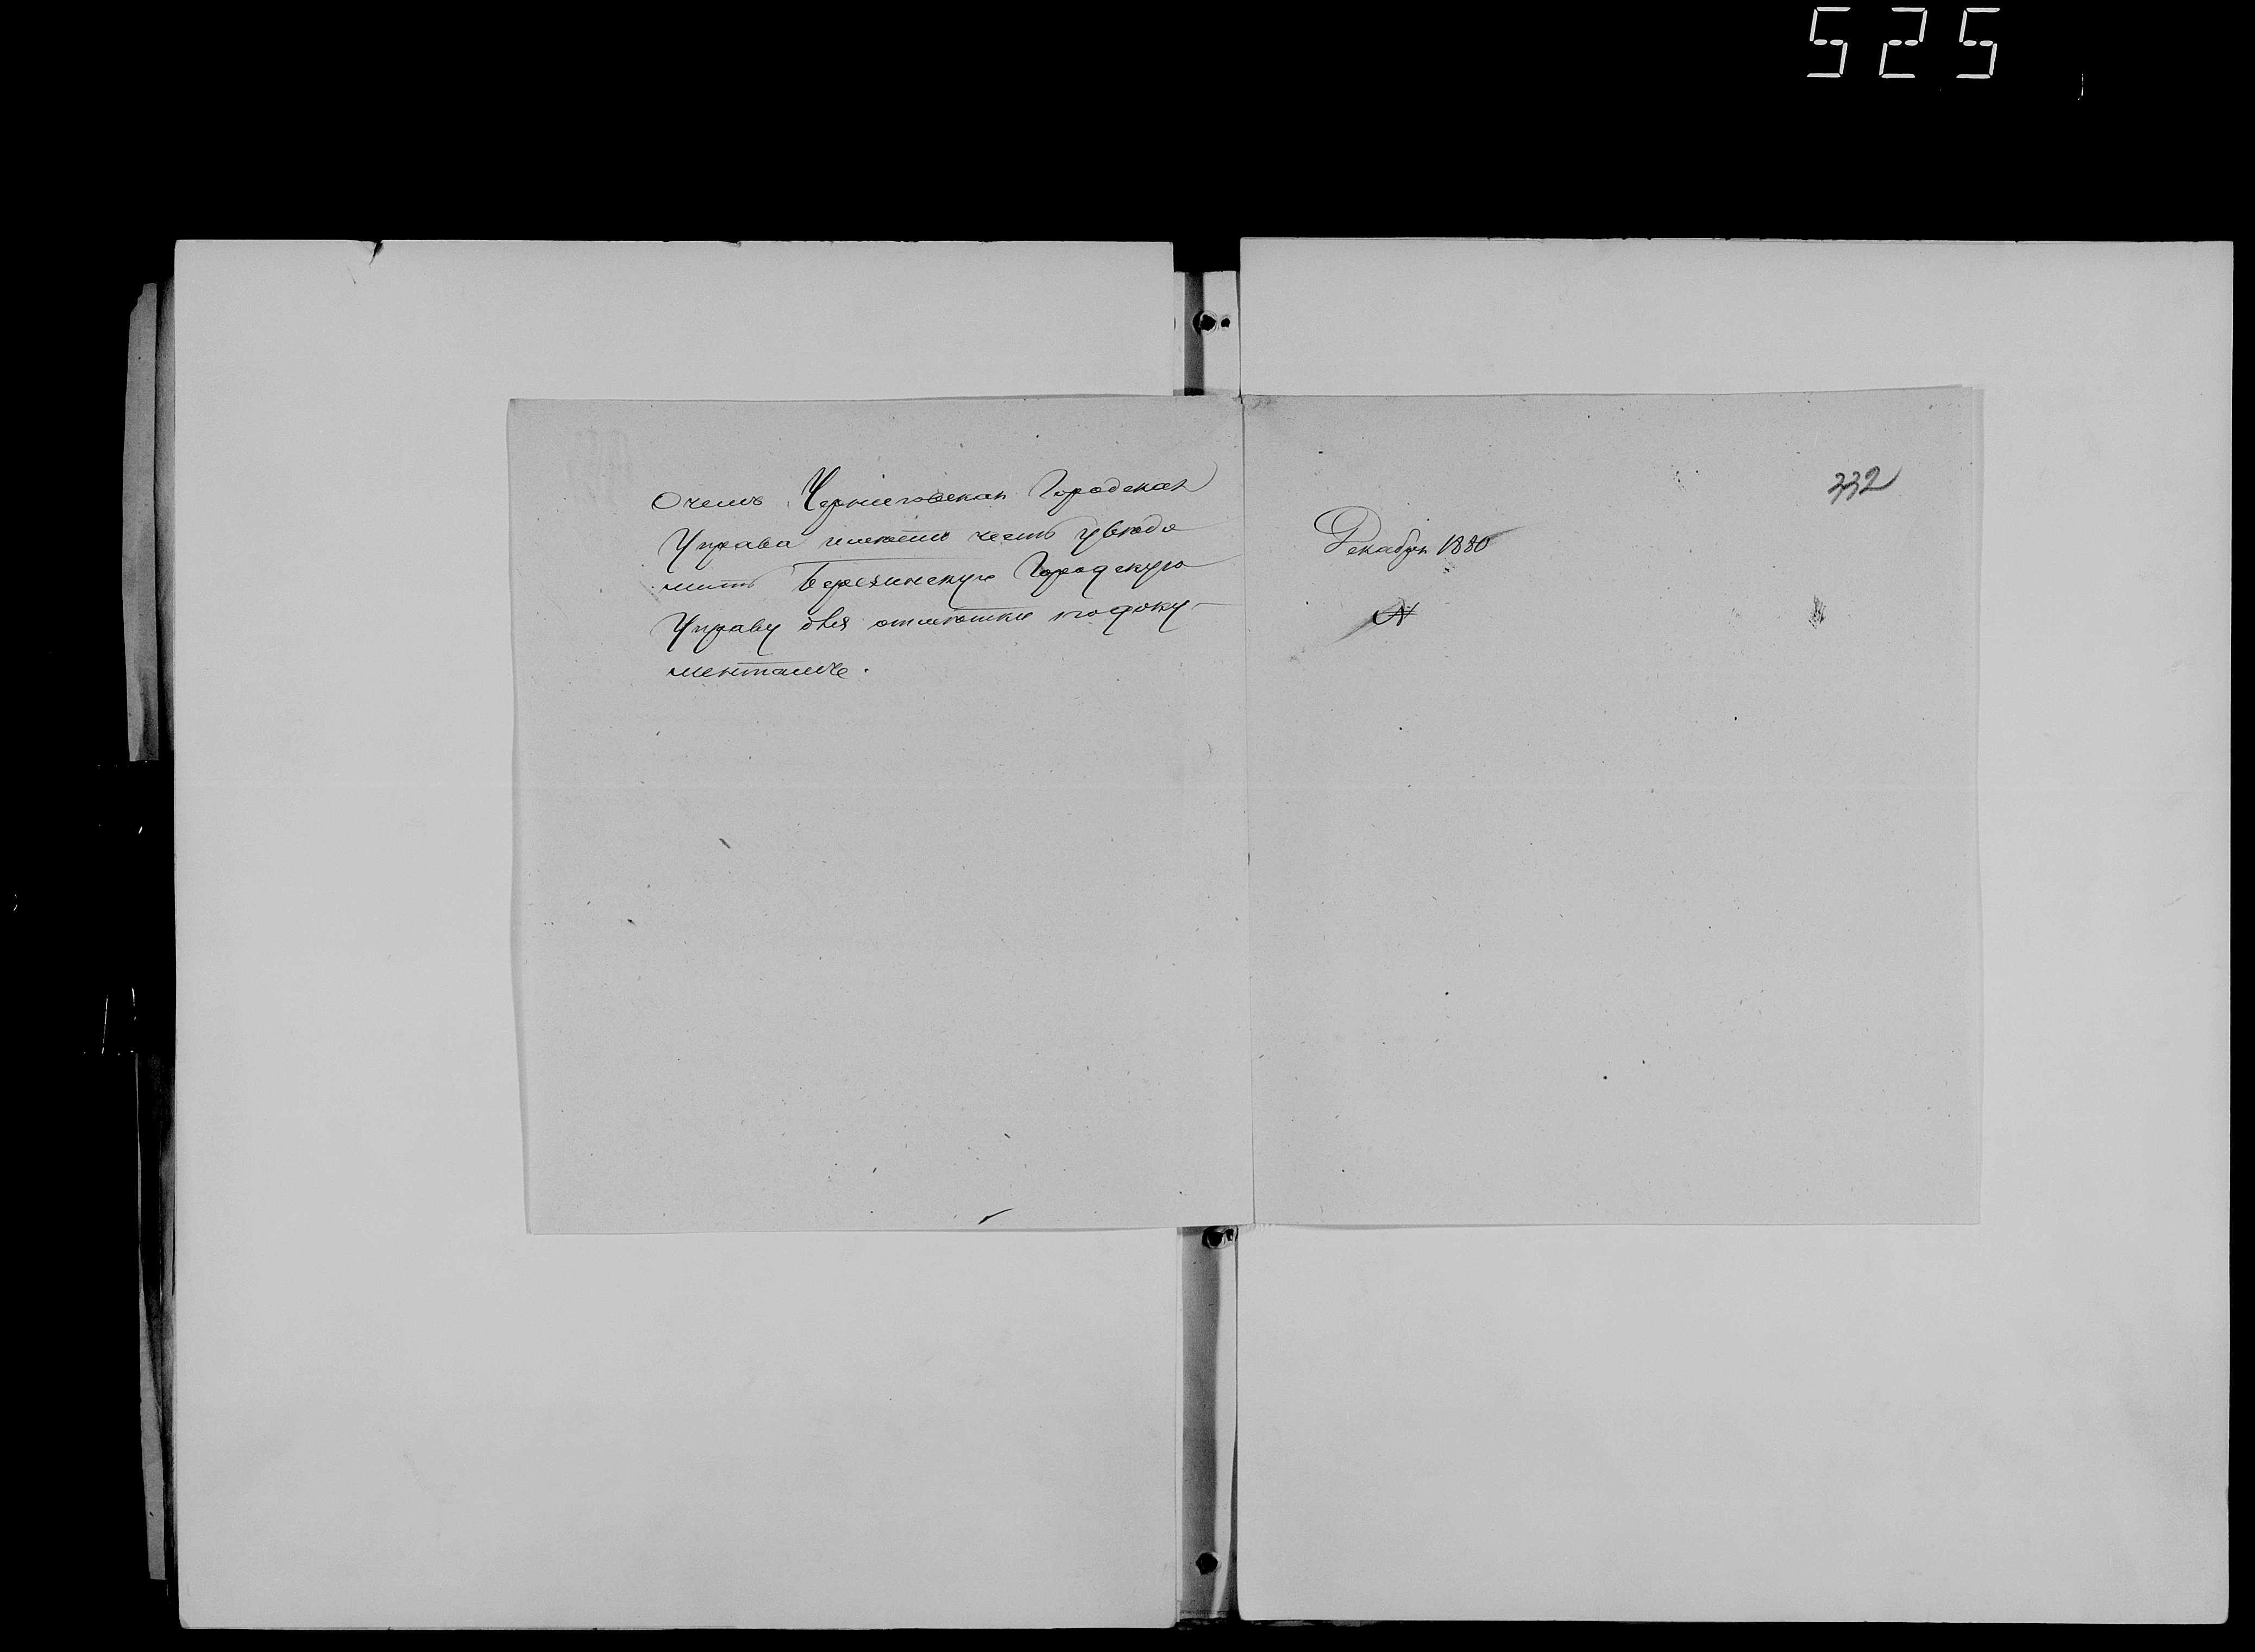 525
О чемъ Черниговская Городская
Управа имѣетъ честь увѣдо
мить Березинскую Городскую
Управу для отмѣтки по доку-
ментамъ.
332
Декабря 1880
№